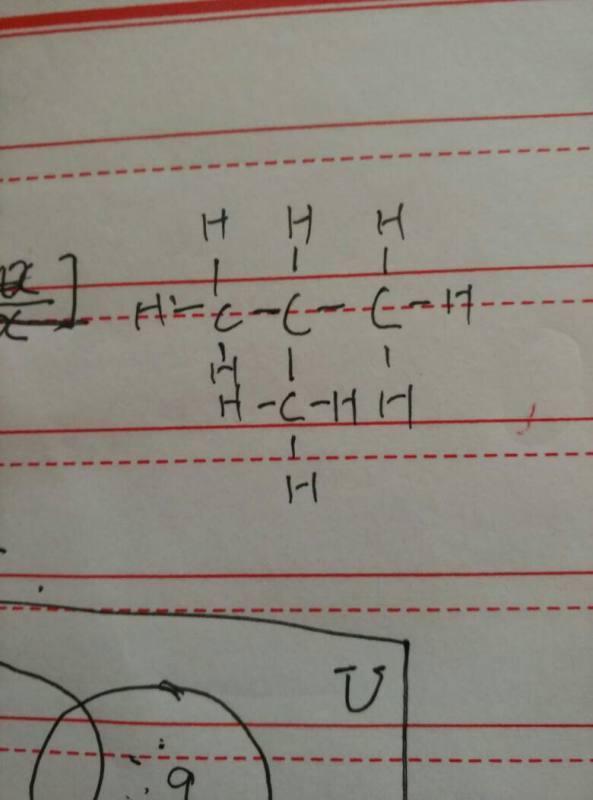 H H H
H - C - C - C - H
H
H - C - H H
H
U
9